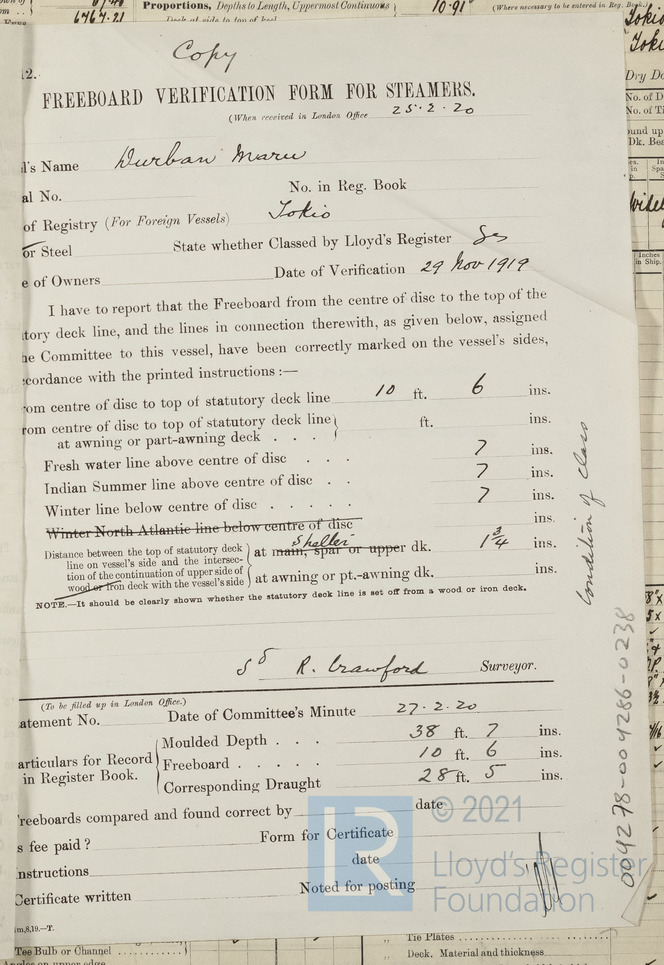 6767.21
Proportions, Depths to Length, Uppermost Continuous
10.91
(Where necessary to be entered in Reg. Book.)
Tokio
Copy
12.
FREEBOARD VERIFICATION FORM FOR STEAMERS.
(When received in London Office 25.2.20
l's Name Durban Maru
al No. No. in Reg. Book
of Registry (For Foreign Vessels) Tokio
or Steel State whether Classed by Lloyd's Register
e of Owners Date of Verification 29 Nov 1919
I have to report that the Freeboard from the centre of disc to the top of the
tory deck line, and the lines in connection therewith, as given below, assigned
he Committee to this vessel, have been correctly marked on the vessel's sides,
cordance with the printed instructions :—
om centre of disc to top of statutory deck line 10 ft. 6 ins.
rom centre of disc to top of statutory deck line ft. ins.
at awning or part-awning deck . . .
Fresh water line above centre of disc . . . 7 ins.
Indian Summer line above centre of disc . . 7 ins.
Winter line below centre of disc . . . . . 7 ins.
Winter North Atlantic line below centre of disc ins.
Distance between the top of statutory deck
line on vessel's side and the intersec-
tion of the continuation of upper side of
wood or iron deck with the vessel's side
Shelter
at main, spar or upper dk. 1 3/4 ins.
at awning or pt.-awning dk. ins.
NOTE.—It should be clearly shown whether the statutory deck line is set off from a wood or iron deck.
Sd R. Crawford Surveyor.
(To be filled up in London Office.)
atement No. Date of Committee's Minute 27.2.20
articulars for Record
in Register Book.
Moulded Depth . . . 38 ft. 7 ins.
Freeboard . . . . . 10 ft. 6 ins.
Corresponding Draught 28 ft. 5 ins.
reeboards compared and found correct by date
s fee paid ? Form for Certificate
nstructions date
Certificate written Noted for posting
m,8,19.—T.
Condition of Class
004278-004286-0238
© 2021
LR
Lloyd's Register
Foundation
Dry Do
No. of D
No. of Ti
Dk. Bea
Inches
in Ship.
Tee Bulb or Channel
Angles on upper edge
Tie Plates
Deck. Material and thickness